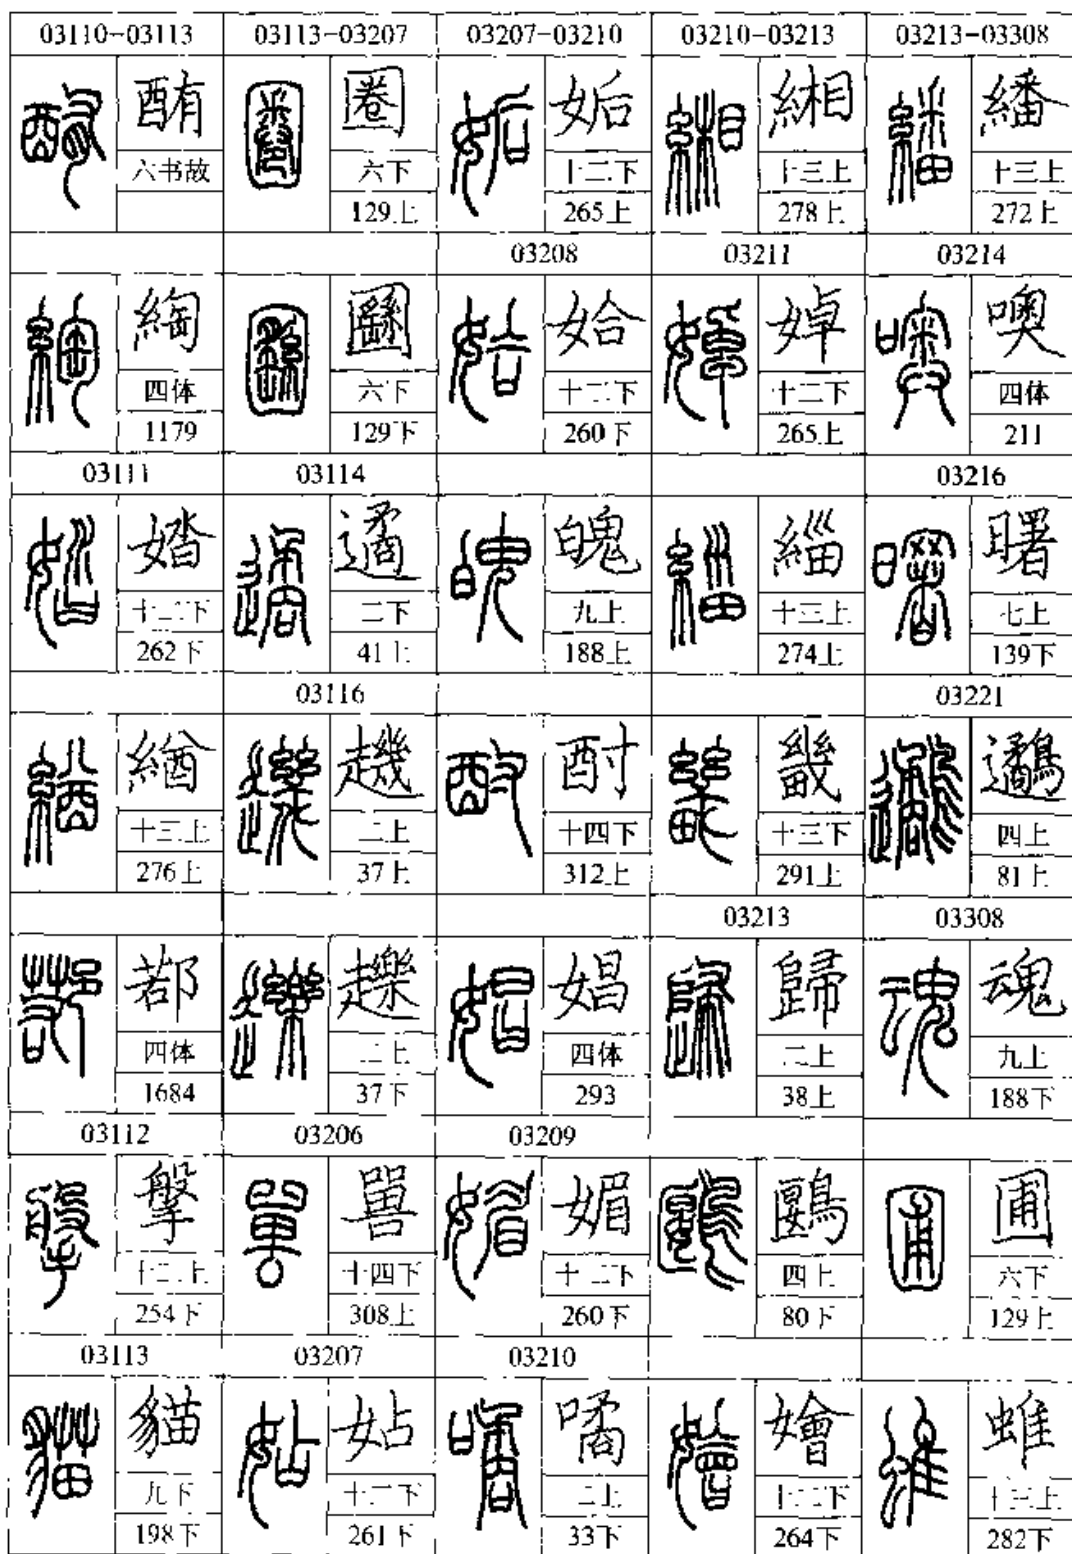 03110-03113
酭
六书故
綯
四体
1179
03111
㛥
十二下
262下
緧
十三上
276上
鄀
四体
1684
03112
搫
十二上
254下
03113
貓
九下
198下
03113-03207
圈
六下
129上
六下
129下
03114
遹
二下
41上
03116
二上
37上
䟏
二上
37下
03206
嘼
十四下
308上
03207
㚲
十二下
261下
03207-03210
姤
十二下
265上
03208
姶
十二下
260下
魄
九上
188上
酎
十四下
312上
娼
四体
293
03209
媚
十二下
260下
03210
噊
二上
33下
03210-03213
緗
十三上
278上
03211
婥
十二下
265上
緇
十三上
274上
畿
十三下
291上
03213
歸
二上
38上
鷗
四上
80下
嬒
十二下
264下
03213-03308
繙
十三上
272上
03214
噢
四体
211
03216
曙
七上
139下
03221
四上
81上
03308
魂
九上
188下
圃
六下
129上
蜼
十三上
282下